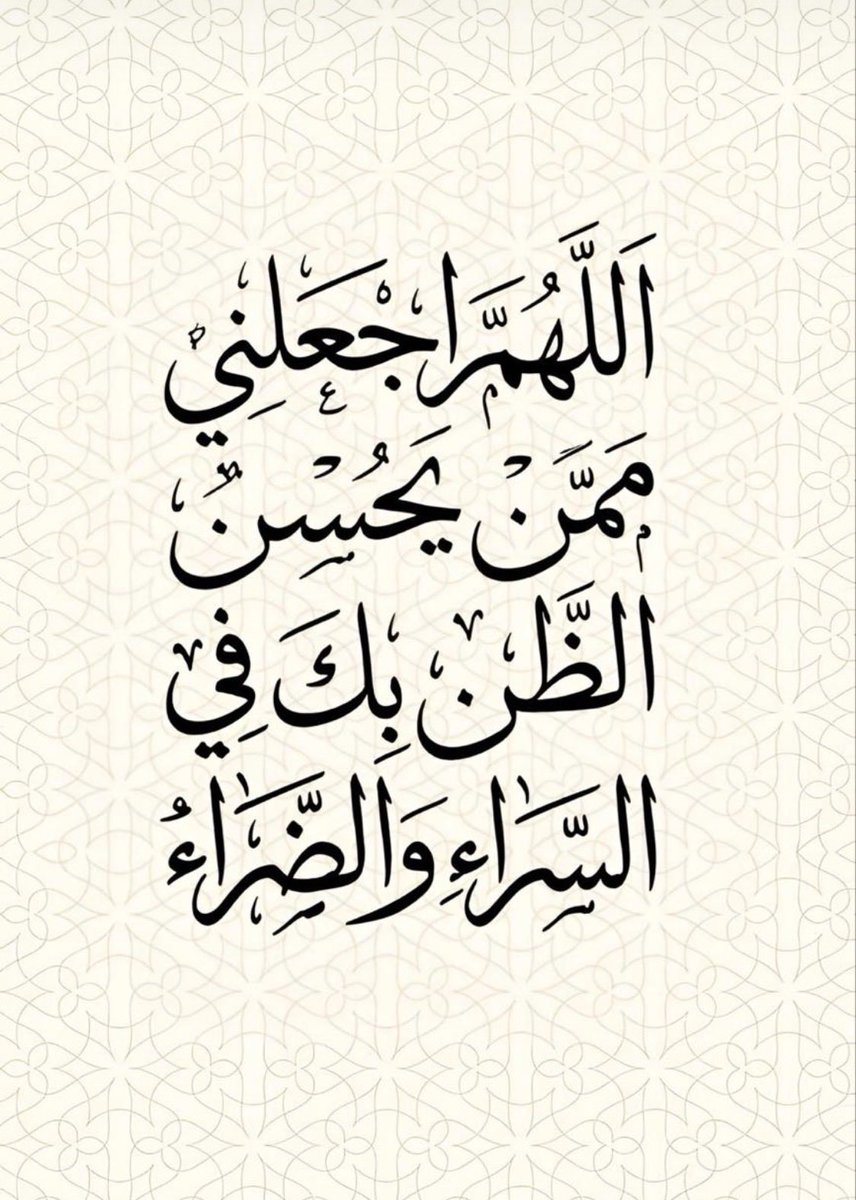 اَللَّهُمَّ اجْعَلْنِي
مَمَّنْ يَحُسْنُ
الظَّن بِكَ فِي
السِّرَاءِ وَالضِّرَاءُ